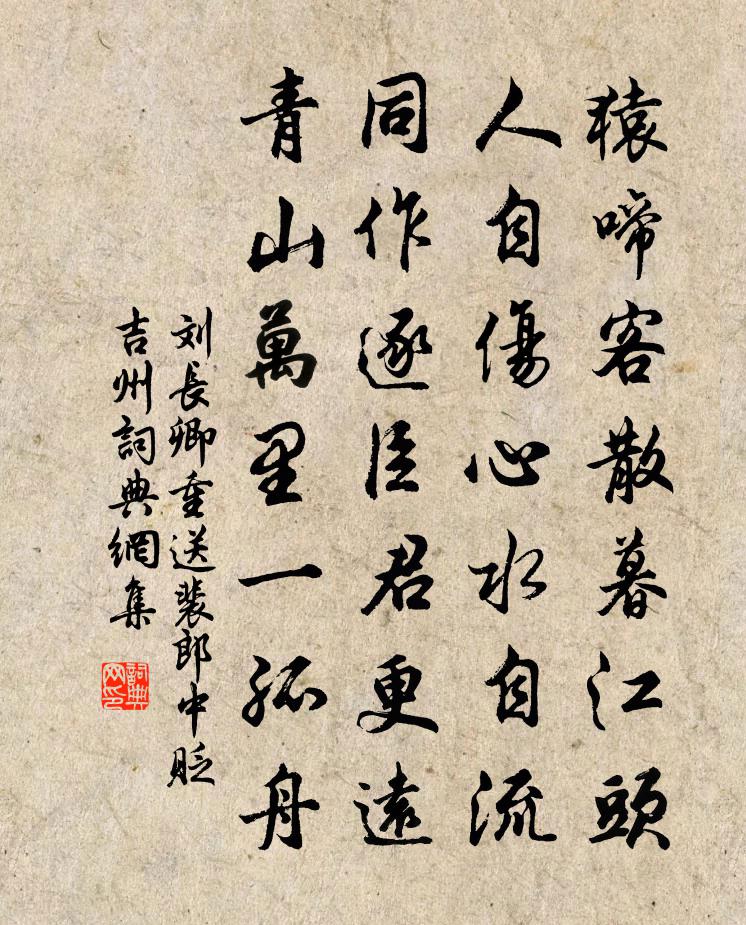 猿啼客散暮江頭
人自傷心水自流
同作逐臣君更遠
青山萬里一孤舟
刘長卿重送裴郎中貶
吉州詞典網集
詞典网印